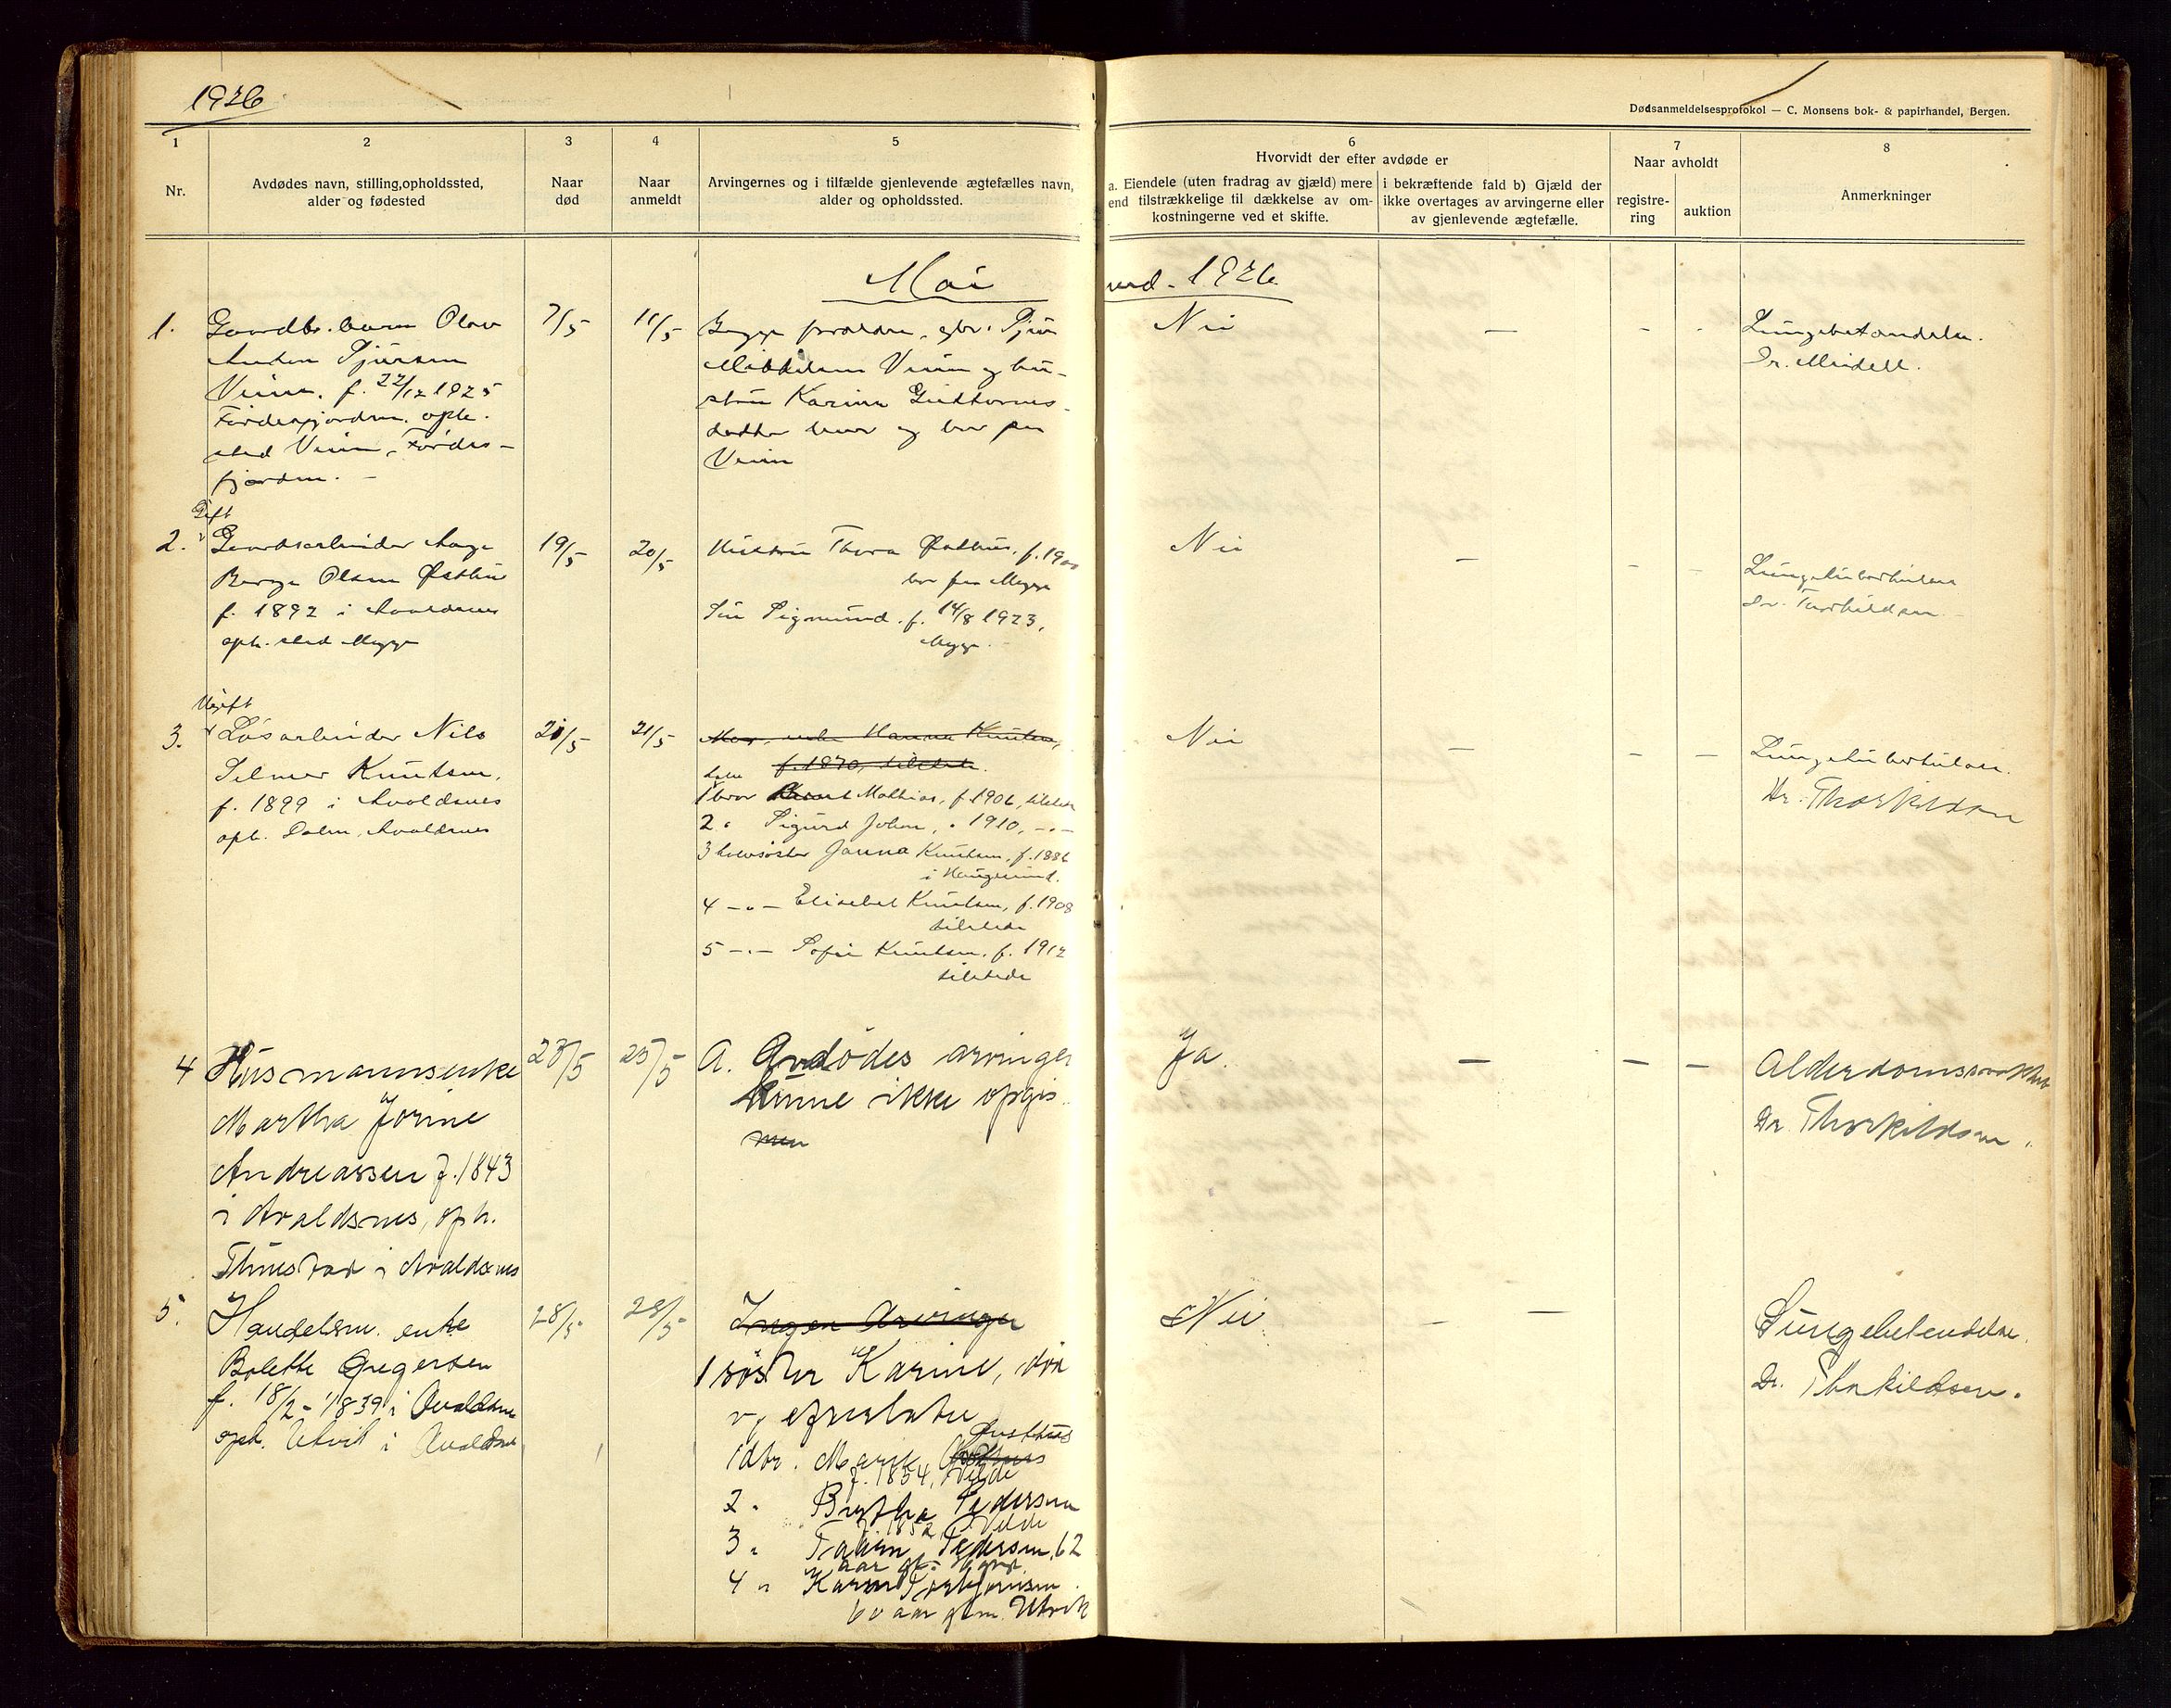 1926
Dødsanmeldelsesprotokol — C. Monsens bok- & papirhandel, Bergen.
1
2
3
4
5
6
7
8
Nr.
Avdødes navn, stilling, opholdssted,
alder og fødested
Naar
død
Naar
anmeldt
Arvingernes og i tilfælde gjenlevende ægtefælles navn,
alder og opholdssted.
Hvorvidt der efter avdøde er
a. Eiendele (uten fradrag av gjæld) mere
end tilstrækkelige til dækkelse av om-
kostningerne ved et skifte.
i bekræftende fald b) Gjæld der
ikke overtages av arvingerne eller
av gjenlevende ægtefælle.
Naar avholdt
registre-
ring
auktion
Anmerkninger
Mai
1926
1.
Gaardbr. barn Olav
f. 22/12 1925
Førdesfjorden. oph.
sted Veim, Førdes-
fjorden. -
7/5
11/5
Begge forældre, gbr.
Mikkelsen Veim og hu-
stru Karina Guttorms-
datter bor paa
Veim
Nei
—
-
-
Lungebetændelse.
Dr. Meidell.
Gift
2.
Gaardsarbeider Aage
Olsen Østhus
f. 1892 i Avaldsnes
oph. sted Mygge
19/5
20/5
Hustru Thora Østhus. f. 1900
bor paa Mygge
Søn Sigmund. f. 14/8 1923,
Mygge.
Nei
—
-
-
Lungetuberkulose
Dr. Thorkildsen
Ugift
3.
Løsarbeider Nils
Selmer Knutsen,
f. 1899 i Avaldsnes
oph. Dalen, Avaldsnes
21/5
21/5
Mor, enke Hanna Knutsen,
f. 1870, tilstede.
1 bror Mathias, f. 1906, tilstede
2 " Sigurd Johan, " 1910, - " -
3 halvsøster Janna Knutsen, f. 1886
i Haugesund.
4 - " - Elisabet Knutsen, f. 1908
tilstede
5 - " - Sofie Knutsen, f. 1912
tilstede
Nei
—
-
-
Lungetuberkulose.
Dr. Thorkildsen
4
Husmannsenke
Martha Jorine
Andreassen f. 1843
i Avaldsnes, oph.
i Avaldsnes
23/5
25/5
A. Avdødes arvinger
kunne ikke opgis
men
Ja.
—
-
-
Dr. Thorkildsen.
5.
Handelsm. enke
Bolette Gregersen
f. 18/2 - 1839 i Avaldsnes
oph. Utvik i Avaldsnes
28/5
28/5
Ingen Arvinger
1 søster Karine, død
efterlater
1 dtr. Marie Østhus
f. 1854,
2 " Bertha Pedersen
3 " Pedersen, 62
aar gl.
4 " Karen Torbjørnsen
60 aar gl. Utvik
Nei
-
—
Lungebetendelse.
Dr. Thorkildsen.